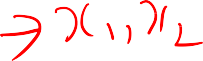 → x₁, x₂